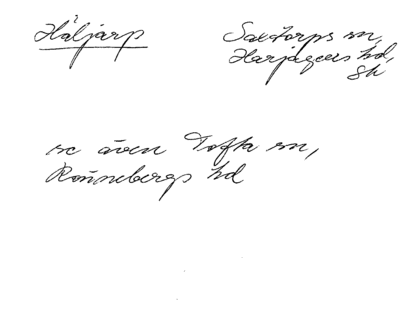 Häljarp
Saxtorps sn,
Harjagers hd,
Sk
se även Tofta sn,
Rönnebergs hd